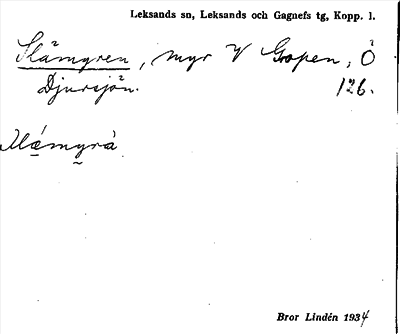 Leksands sn, Leksands och Gagnefs tg, Kopp. l.
Slåmyren, myr V Gropen, Ö
Djursjön. 126.
Bror Lindén 1934